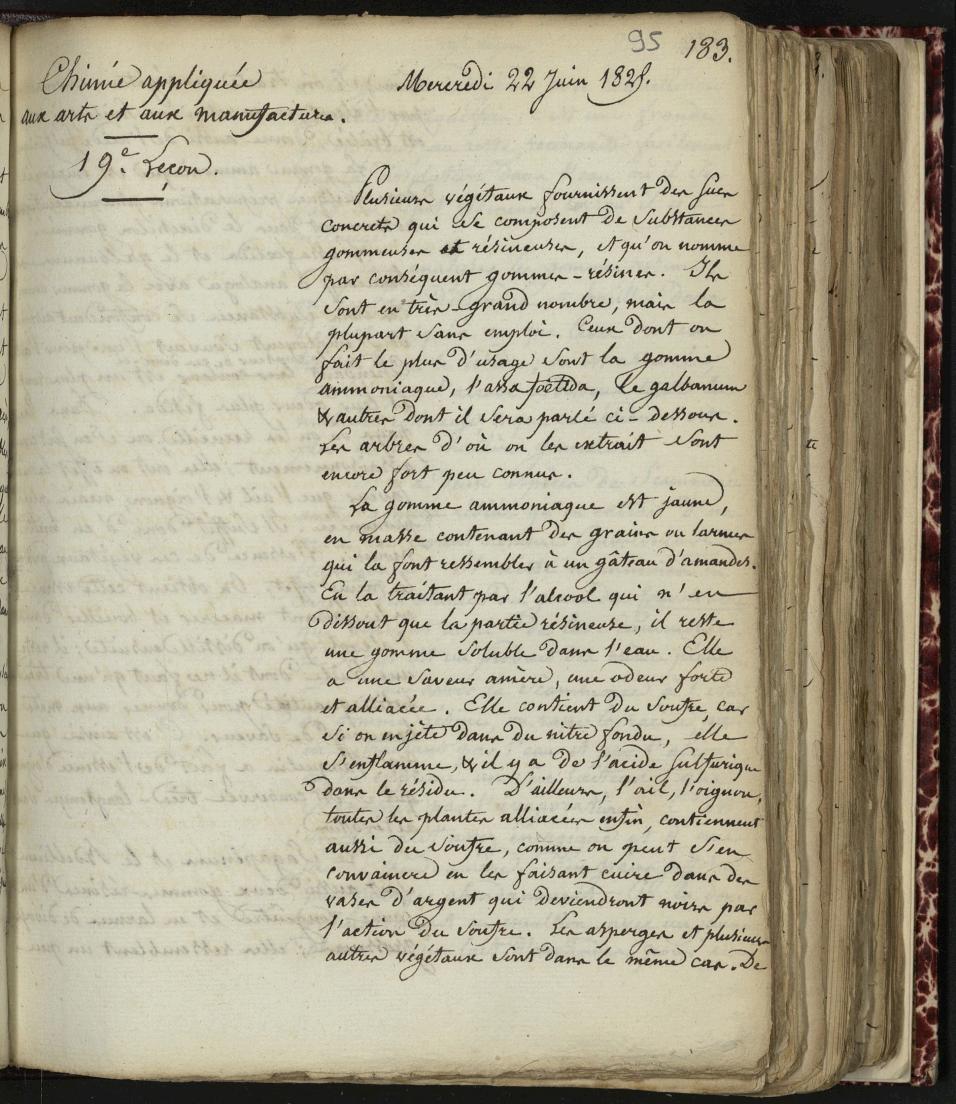 95 183.
Chimie appliquée
aux arts et aux manufactures.
Mercredi 22 Juin 1825.
19e. Leçon.
Plusieurs végétaux fournissent des sucs
concrets qui se composent de substances
gommeuses et résineuses, et qu'on nomme
par conséquent gommes-résines. Ils
sont en très-grand nombre, mais la
plupart sans emploi. Ceux dont on
fait le plus d'usage sont la gomme
ammoniaque, l'assa foetida, le galbanum
& autres dont il sera parlé ci-dessous.
Les arbres d'où on les extrait sont
encore fort peu connus.
La gomme ammoniaque est jaune,
en masse contenant des grains ou larmes
qui la font ressembler à un gâteau d'amandes.
En la traitant par l'alcool qui n'en
dissout que la partie résineuse, il reste
une gomme soluble dans l'eau. Elle
a une saveur amère, une odeur forte
et alliacée. Elle contient du soufre, car
si on en jète dans du nitre fondu, elle
s'enflamme, & il y a de l'acide sulfurique
dans le résidu. D'ailleurs, l'ail, l'oignon,
toutes les plantes alliacées enfin, contiennent
aussi du soufre, comme on peut s'en
convaincre en les faisant cuire dans des
vases d'argent qui deviendront noirs par
l'action du soufre. Les asperges et plusieurs
autres végétaux sont dans le même cas. De